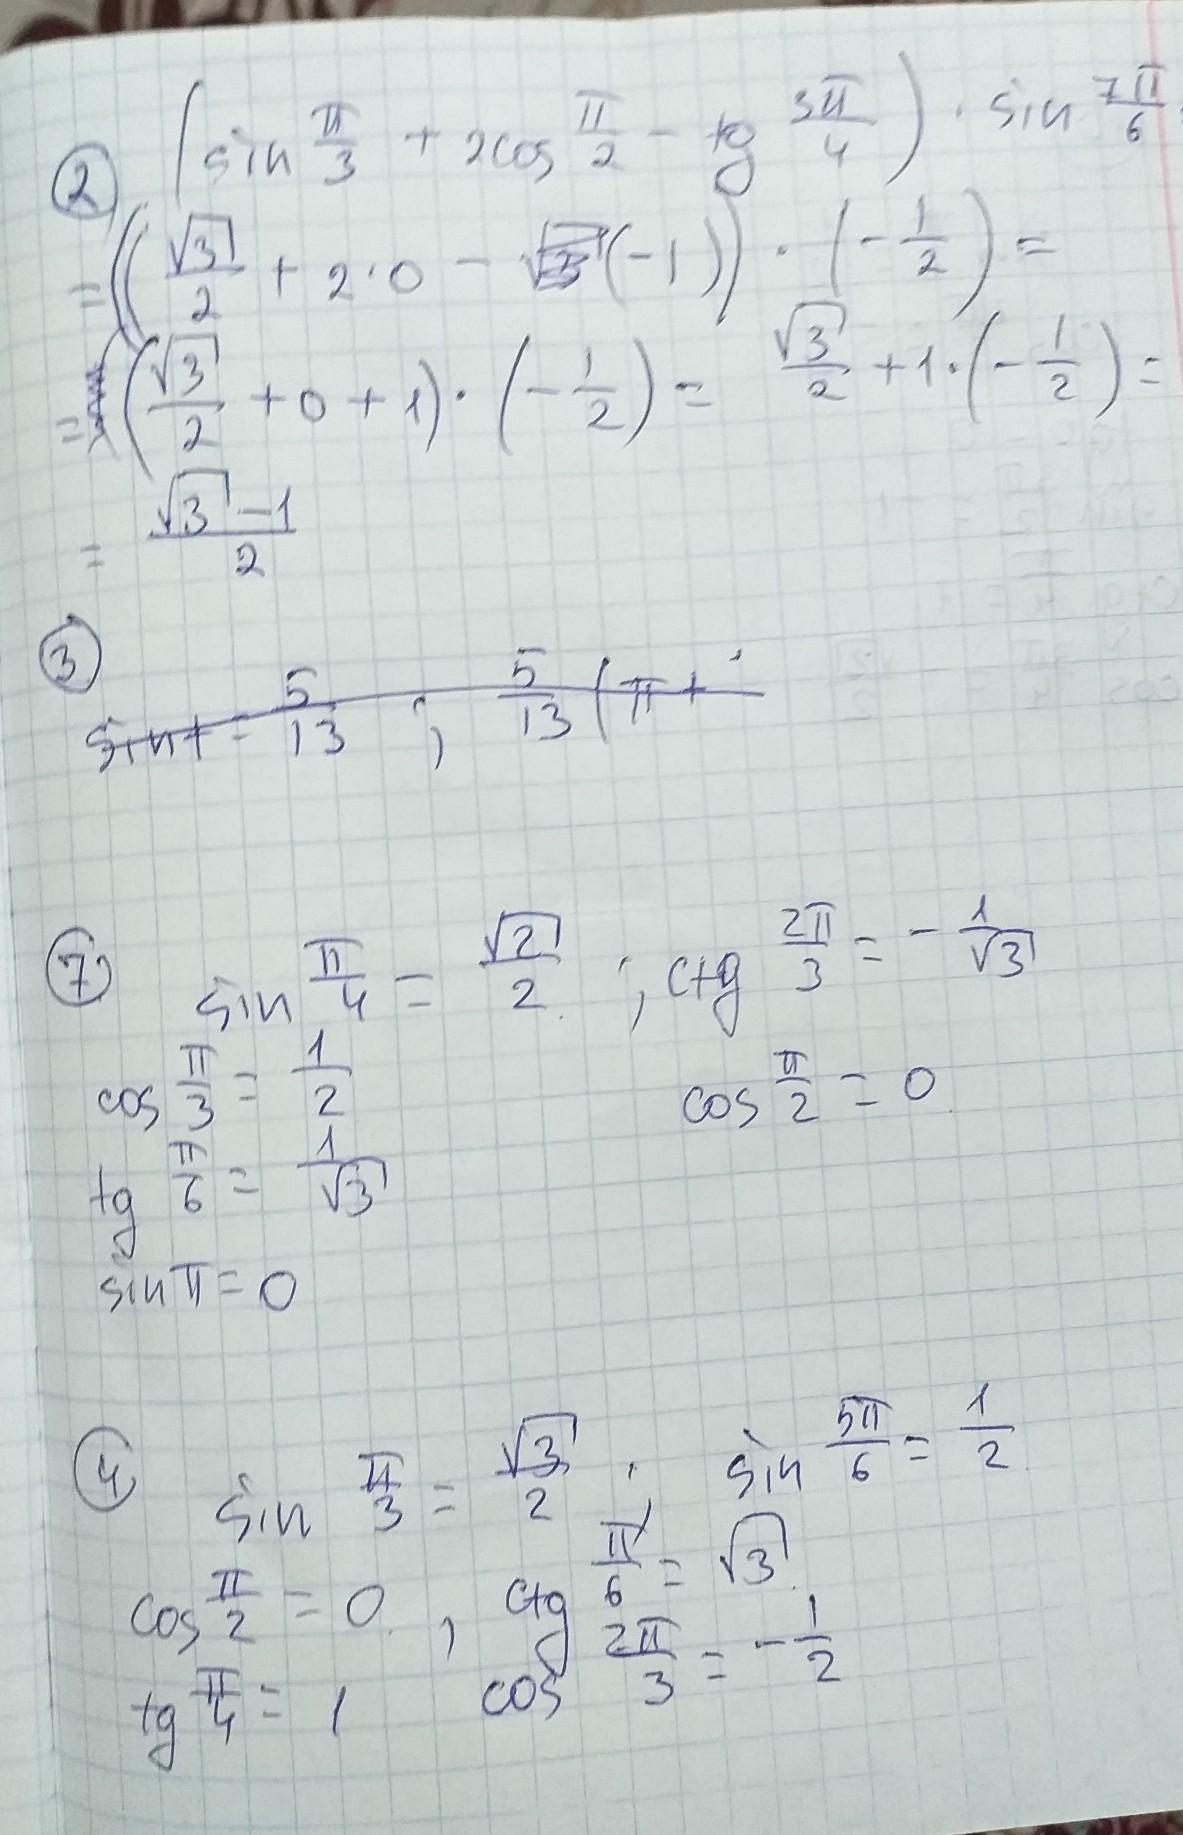 ② (sin π/3 + 2cos π/2 - tg 3π/4) · sin 7π/6
= ((√3/2 + 2·0 - (-1)) · (-1/2) =
= (√3/2 + 0 + 1) · (-1/2) = √3/2 + 1·(-1/2) =
= √3 - 1/2
③
sin t = 5/13 ; 5/13 (π +
⑦ sin π/4 = √2/2 ; ctg 2π/3 = -1/√3
cos π/3 = 1/2 cos π/2 = 0
tg π/6 = 1/√3
sin π = 0
④ sin π/3 = √3/2 ; sin 5π/6 = 1/2
cos π/2 = 0 , ctg π/6 = √3
tg π/4 = 1 cos 2π/3 = -1/2